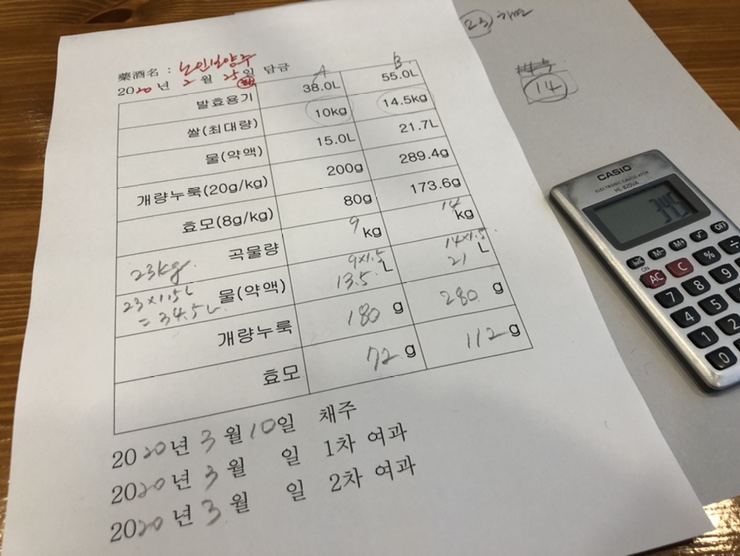 藥酒名 : 노인보양주
2020년 2월 25일 담금
A B
발효용기 38.0L 55.0L
쌀(최대량) 10kg 14.5kg
물(약액) 15.0L 21.7L
개량누룩(20g/kg) 200g 289.4g
효모(8g/kg) 80g 173.6g
곡물량 9 kg 14 kg
23kg
물(약액) 9x1.5 13.5 L 14x1.5 21 L
23x1.5L
= 34.5L
개량누룩 180 g 280 g
효모 72 g 112 g
2020년 3월 10일 채주
2020년 3월 일 1차 여과
2020년 3월 일 2차 여과
23
14
CASIO
ELECTRONIC CALCULATOR
HL-820LA
34.5
MRC M- M+ √ OFF
AC C % ÷
7 8 9
4 5
1 2
0